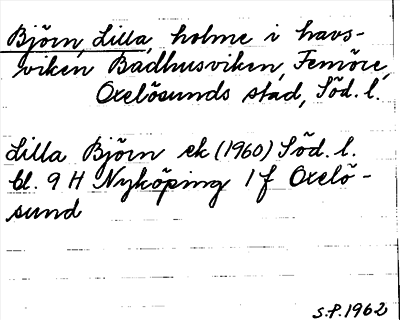 Björn, Lilla, holme i havs-
viken Badhusviken, Femöre,
Oxelösunds stad, Söd. l.
Lilla Björn ek (1960) Söd. l.
bl. 9 H Nyköping 1 f Oxelö-
sund
S.P. 1962